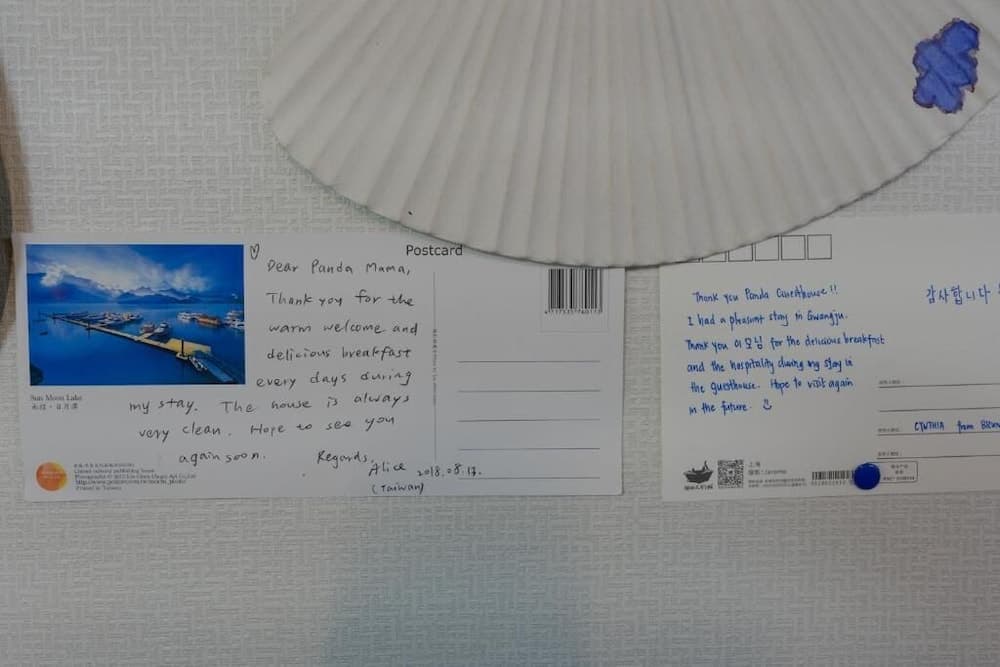 Postcard
Dear Panda Mama,
Thank you for the
warm welcome and
delicious breakfast
every days during
my stay. The house is always
very clean. Hope to see you
again soon.
Regards,
Alice 2018.08.17.
(Taiwan)
Sun Moon Lake
Printed in Taiwan
Thank you Panda Guesthouse!!
I had a pleasant stay in Gwangju.
Thank you 이모님 for the delicious breakfast
and the hospitality during my stay in
the guesthouse. Hope to visit again
in the future.
감사합니다
CYNTHIA from
上海